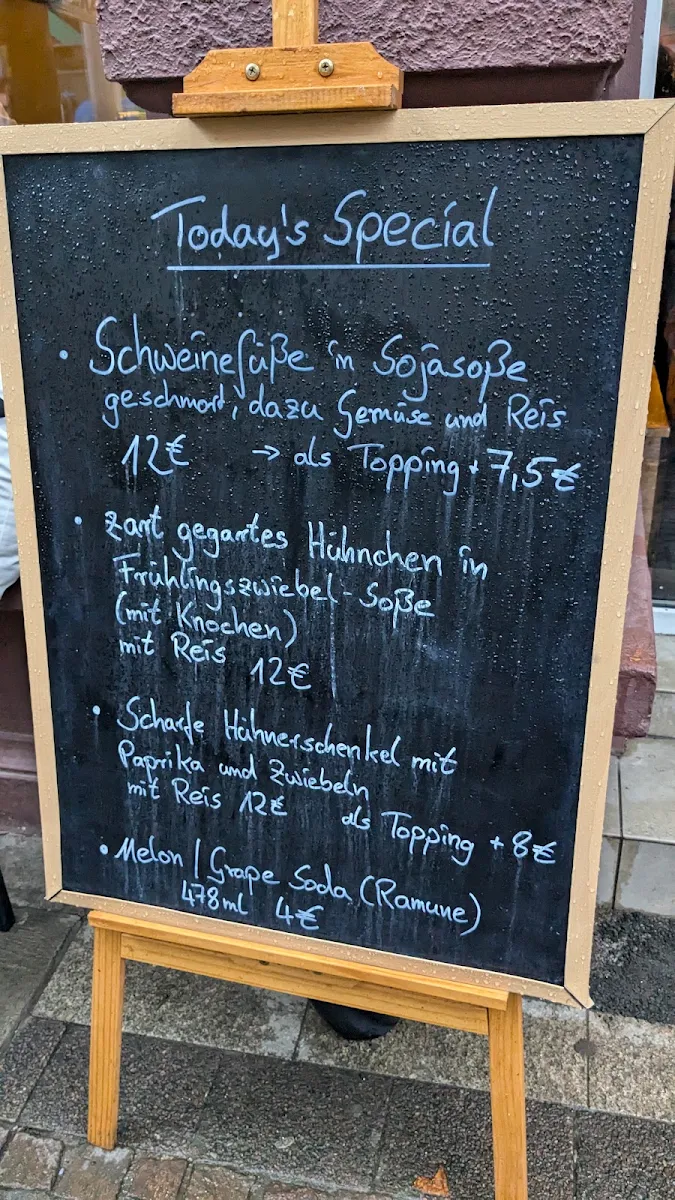 Today's Special
• Schweinefüße in Sojasoße
geschmort, dazu Gemüse und Reis
12€ → als Topping + 7,5€
• zart gegartes Hühnchen in
Frühlingszwiebel-Soße
(mit Knochen)
mit Reis 12€
• Scharfe Hühnerschenkel mit
Paprika und Zwiebeln
mit Reis 12€ als Topping + 8€
• Melon / Grape Soda (Ramune)
478ml 4€